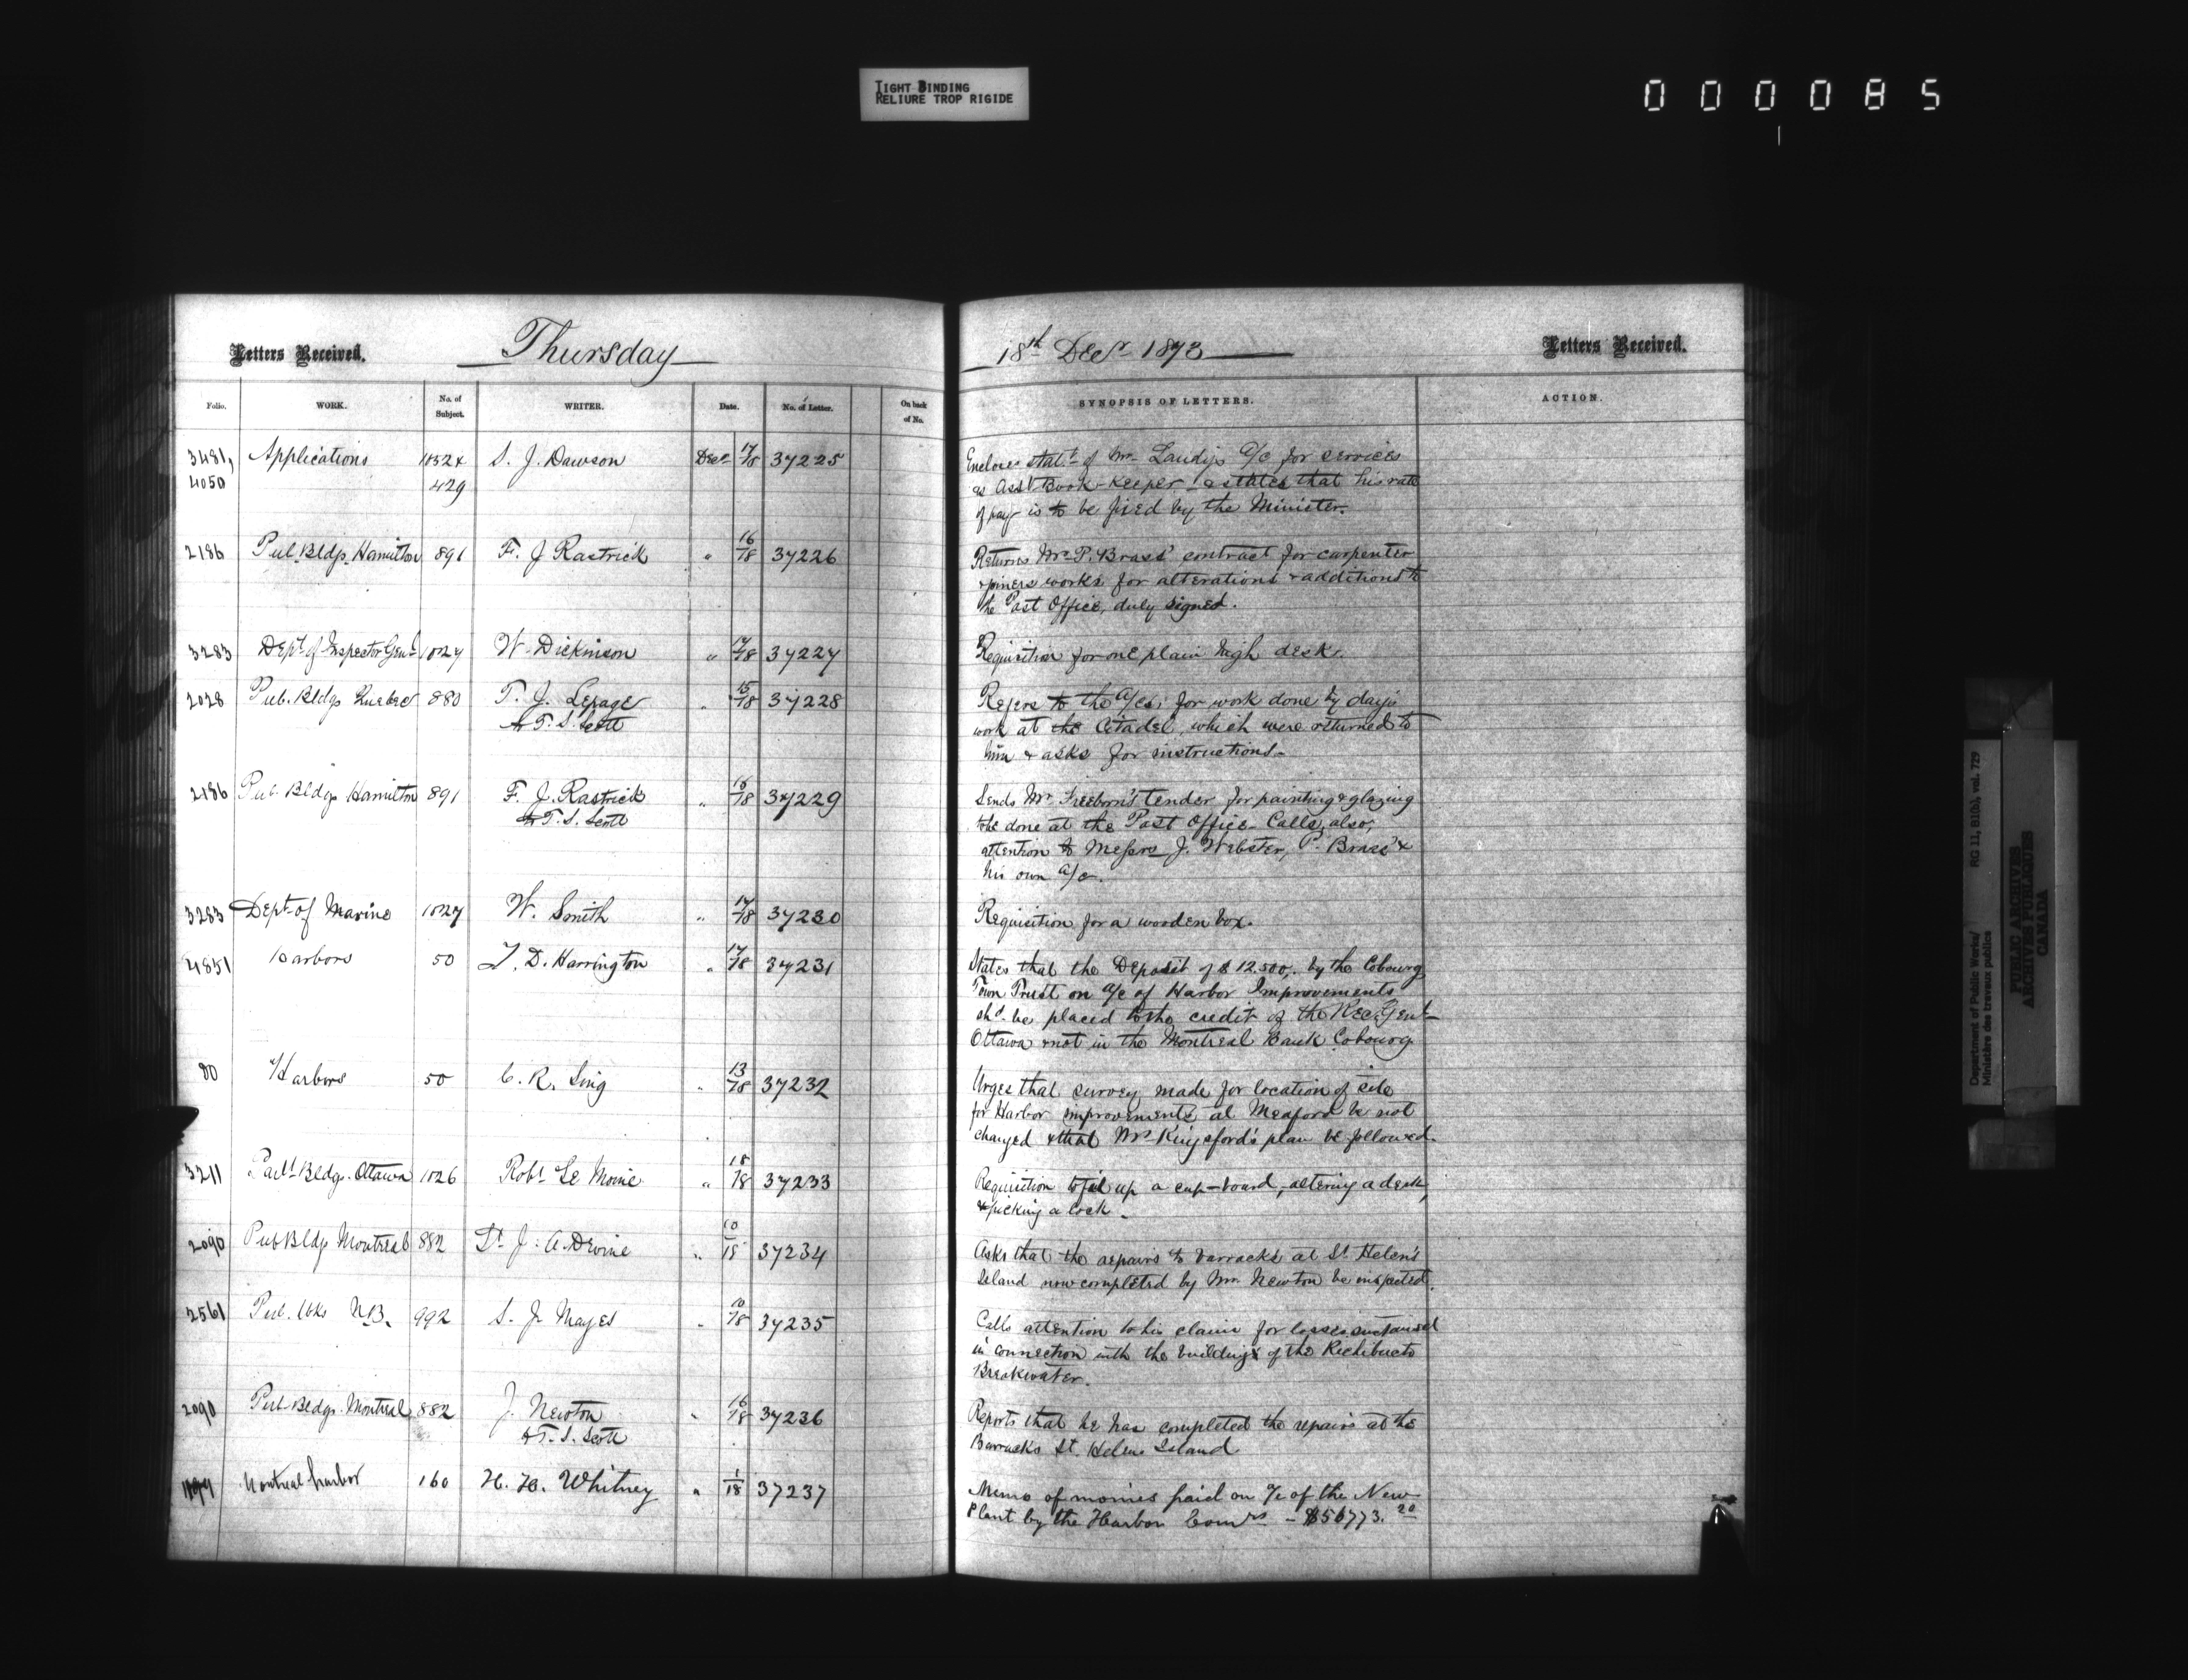 TIGHT BINDING
RELIURE TROP RIGIDE
000085
Letters Received.
Thursday
18th Decr 1873
Letters Received.
Folio. WORK. No. of Subject. WRITER. Date. No. of Letter. On back of No. SYNOPSIS OF LETTERS. ACTION.
3481, Applications S. J. Dawson Decr 17/18 37225 Encloses stat.t of Mr. a/c for services
4050 429 as Asst Book-keeper & states that his rate
of pay is to be fixed by the Minister.
2186 Pub. Bldgs. Hamilton 891 F. J Rastrick " 16/18 37226 Returns Mr P. Brass' contract for carpenter
& joiners works for alterations & additions to
the Post Office, duly signed.
3283 Dept of Inspector Genl 1027 W. Dickinson " 17/18 37227 Requisition for one plain high desk.
2028 Pub. Bldgs Quebec 880 T. J. Lepage " 15/18 37228 Refers to the a/cs; for work done by day's
to T. S. Scott work at the Citadel, which were returned to
him & asks for instructions.
2186 Pub. Bldgs Hamilton 891 F. J. Rastrick " 16/18 37229 Sends Mr Freeborn's tender for painting & glazing
to T. S. Scott to be done at the Post Office. Calls, also,
attention to Messrs J. Webster, P. Brass' &
his own a/c.
3283 Dept of Marine 1027 W. Smith " 17/18 37230 Requisition for a wooden box.
4851 Harbors 50 T. D. Harrington " 17/18 37231 States that the Deposit of $12.500,. by the Cobourg
Town Trust on a/c of Harbor Improvements
shd. be placed to the credit of the Rec. Genl
Ottawa & not in the Montreal Bank Cobourg
80 Harbors 50 C. R. Sing " 13/18 37232 Urges that survey made for location of site
for Harbor improvements at Meaford be not
changed & that Mr Kingsford's plan be followed.
3211 Parlt Bldgs. Ottawa 1026 Robt Le Moine " 18/18 37233 Requisition to up a cup-board, altering a desk,
& picking a lock.
2090 Pub Bldgs Montreal 882 Lt J. A. Devine " 10/18 37234 Asks that the repairs to barracks at St Helen's
Island now completed by Mr. Newton be inspected.
2561 Pub. Wks N.B. 992 S. J. Mayes " 10/18 37235 Calls attention to his claim for losses sustained
in connection with the buildings of the Richibucto
Breakwater.
2090 Pub. Bldgs. Montreal 882 J. Newton " 16/18 37236 Reports that he has completed the repairs at the
to T. S. Scott Barracks St. Helens Island
Montreal harbor 160 H. H. Whitney " 1/18 37237 Memo of monies paid on a/c of the New
Plant by the Harbor Comrs - $56773.20
Department of Public Works/ RG 11, B1(b), vol. 729
Ministère des travaux publics
PUBLIC ARCHIVES
ARCHIVES PUBLIQUES
CANADA